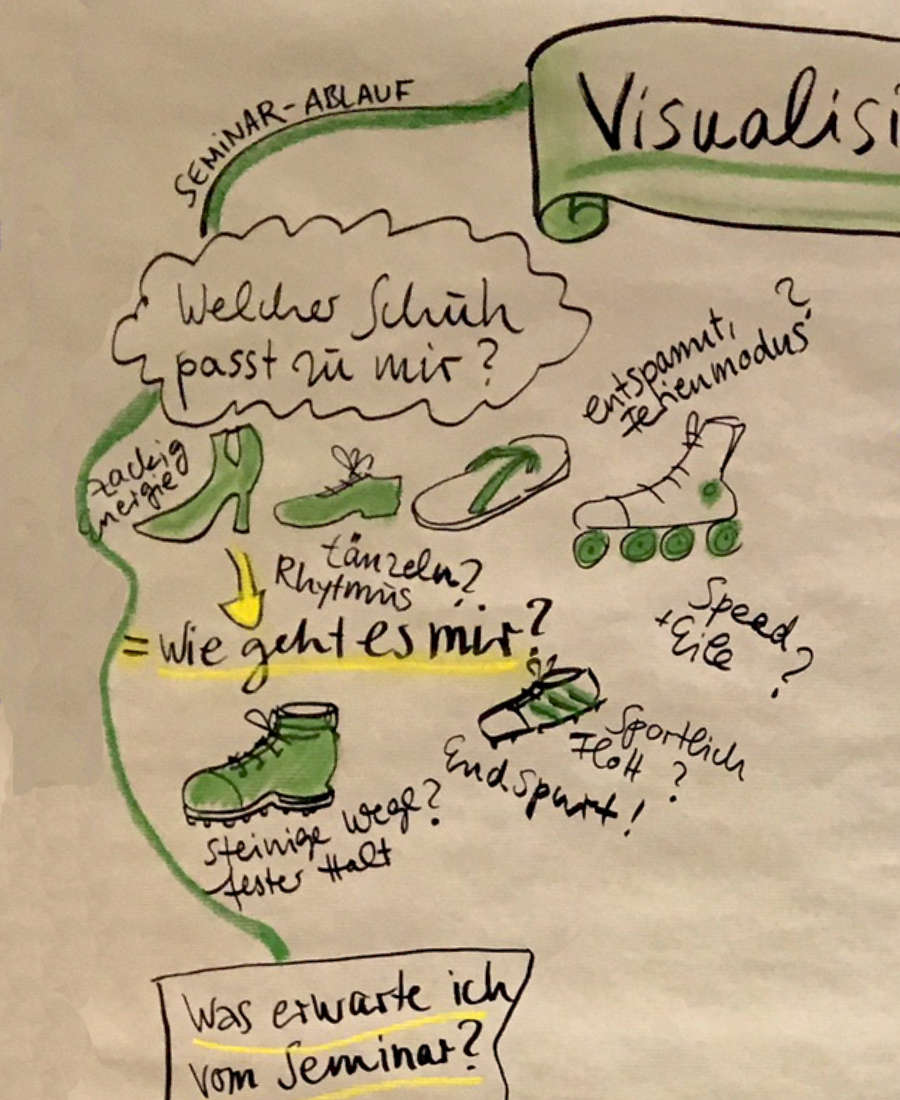 SEMINAR-ABLAUF
Visualisi
Welcher Schuh
passt zu mir?
entspannt,
Ferienmodus?
zackig
nergie
tänzeln?
Rhytmus
= Wie geht es mir?
Speed
+ Eile ?
Sportlich
Flott ?
Endspurt!
steinige Wege?
fester Halt
Was erwarte ich
vom Seminar?